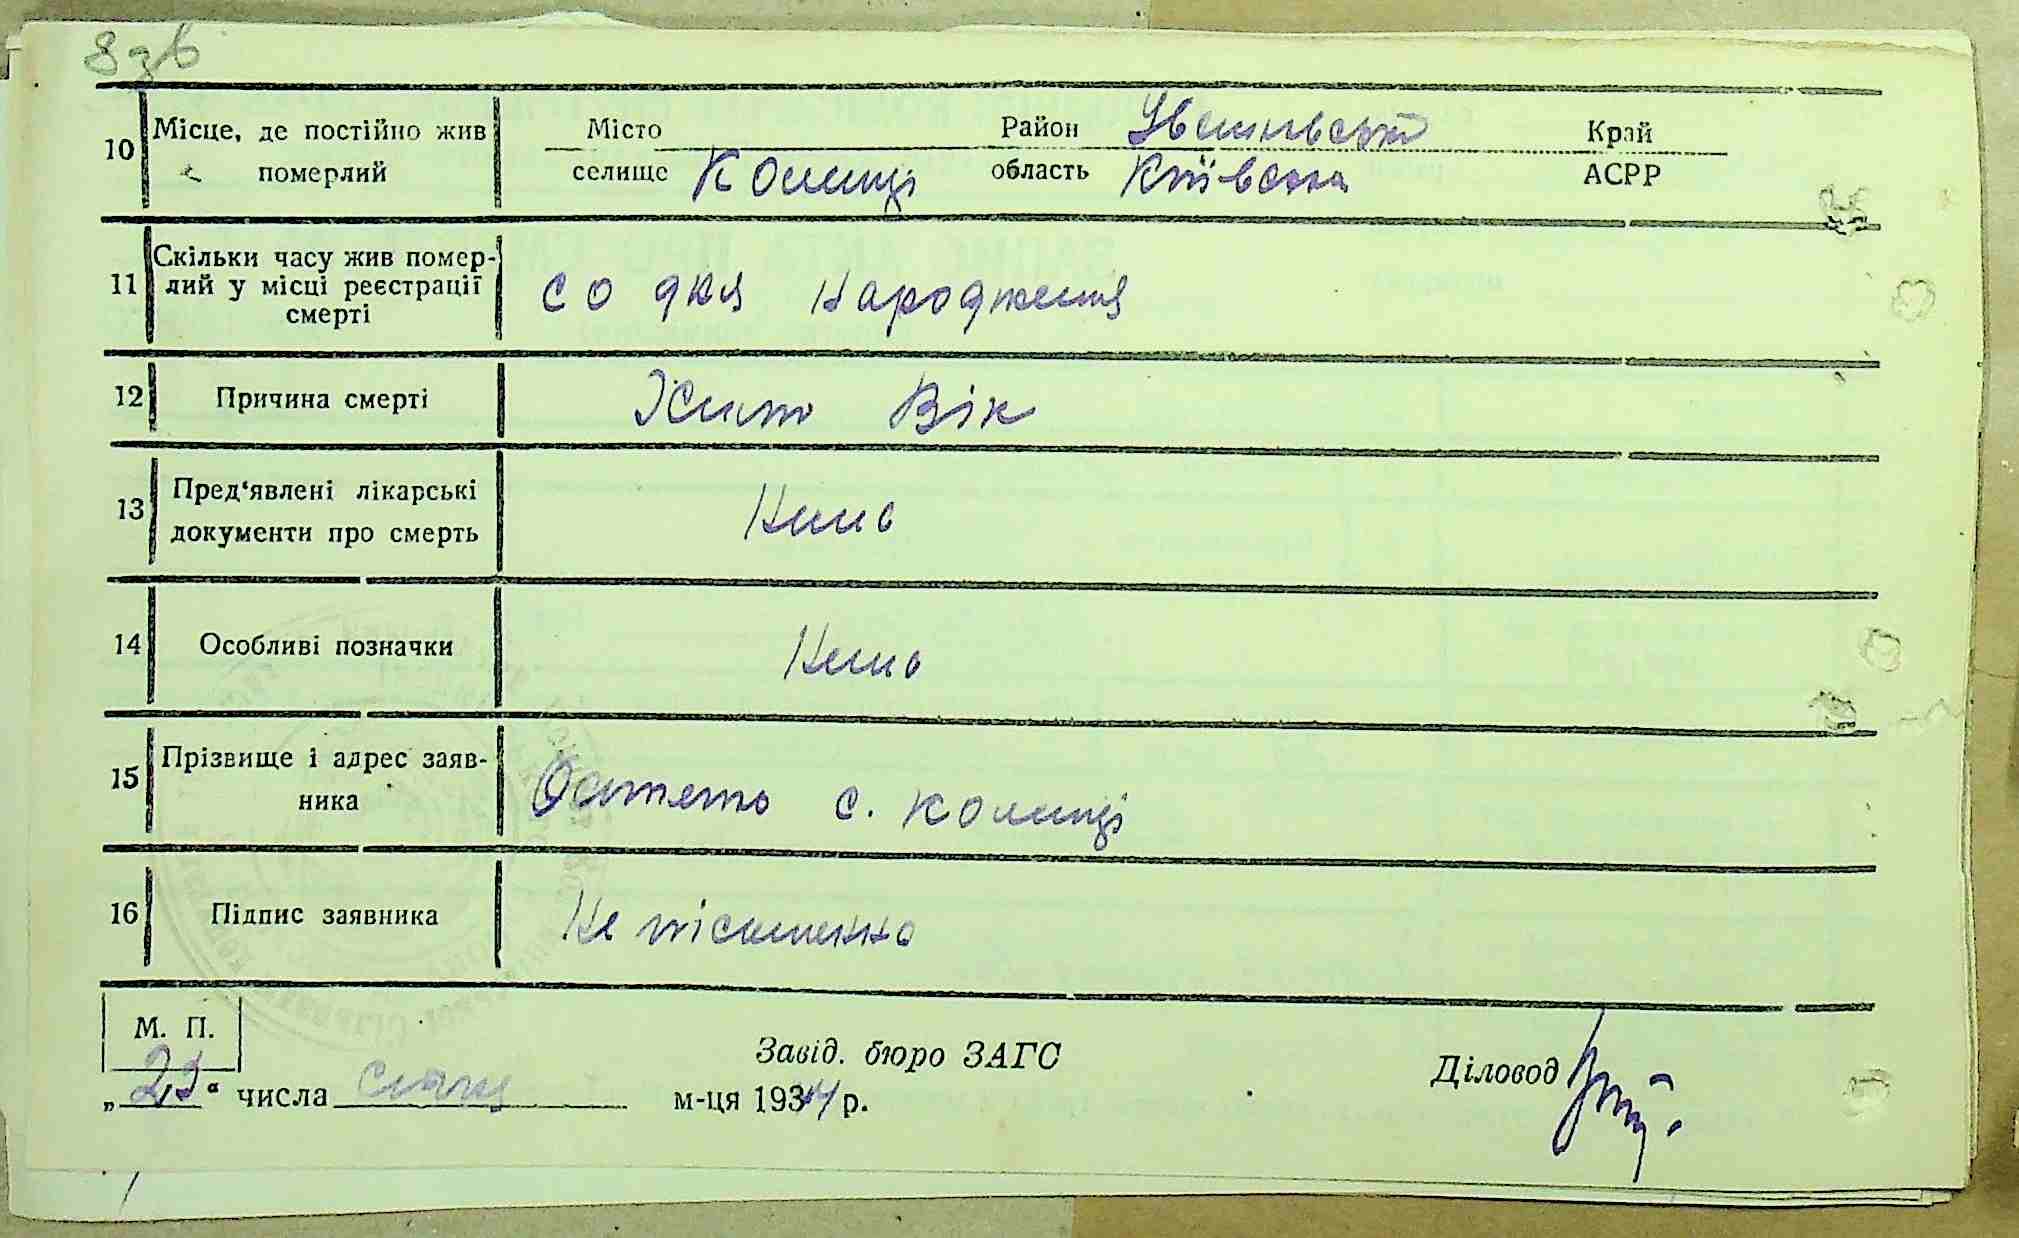 8зв
10 Місце, де постійно жив Місто Район Край
померлий селище область Київська АСРР
11 Скільки часу жив помер-
лий у місці реєстрації со дня народження
смерті
12 Причина смерті Жито Вік
13 Пред'явлені лікарські
документи про смерть Нема
14 Особливі позначки Нема
15 Прізвище і адрес заяв-
ника с.
16 Підпис заявника Не письменно
М. П.
Завід. бюро ЗАГС
Діловод
„23“ числа січня м-ця 1934 р.